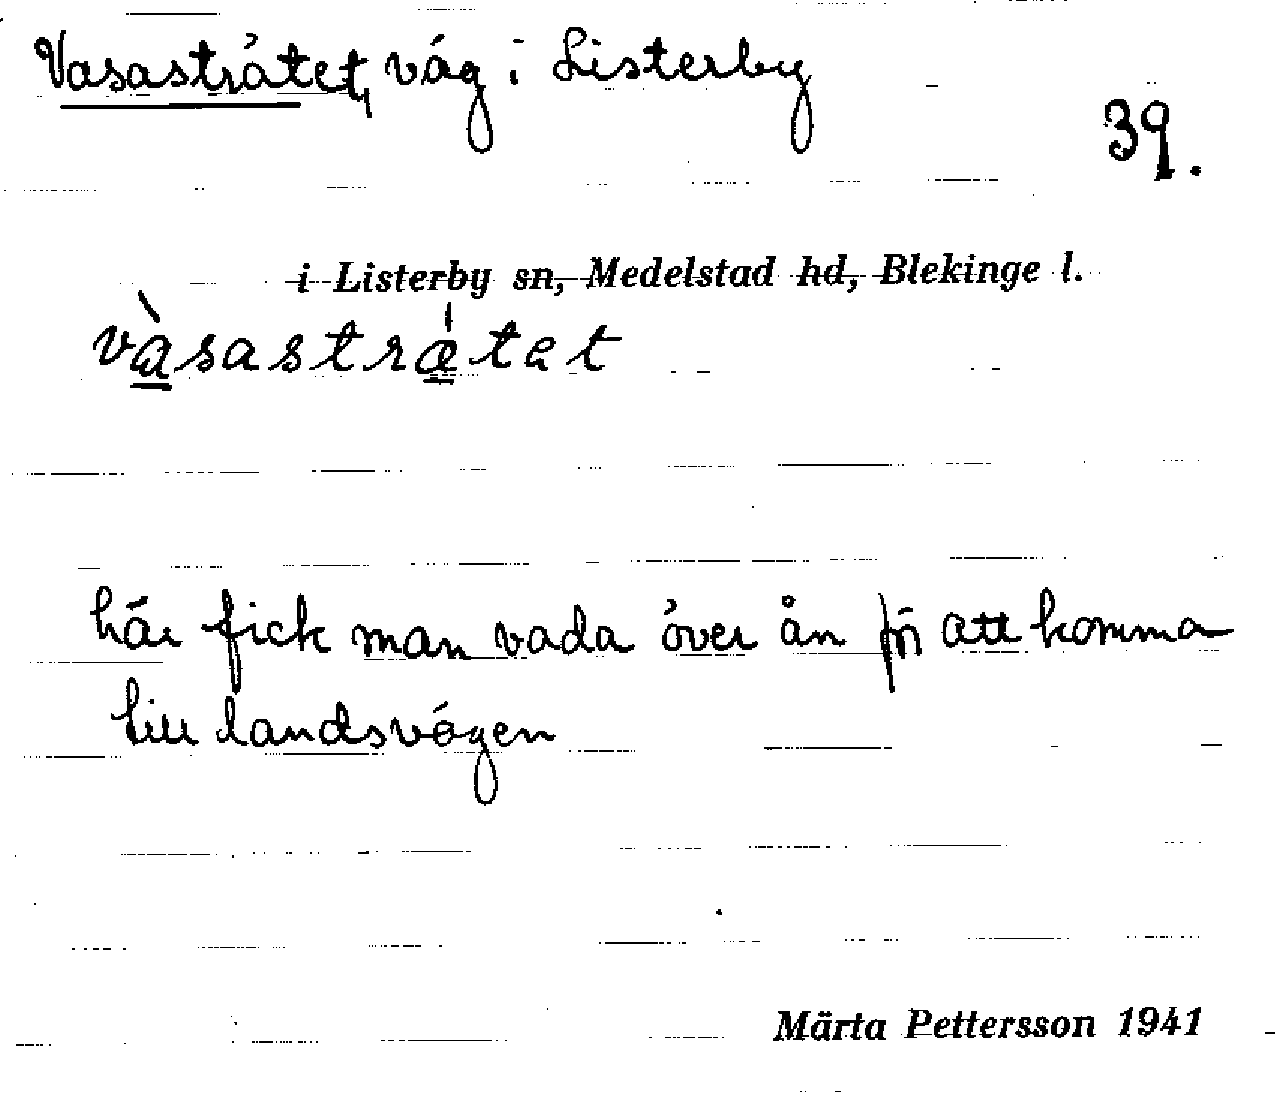 Vasasträtet, väg i Listerby
39.
i Listerby sn, Medelstad hd, Blekinge l.
vàsastrætet
här fick man vada över ån för att komma
till landsvägen
Märta Pettersson 1941